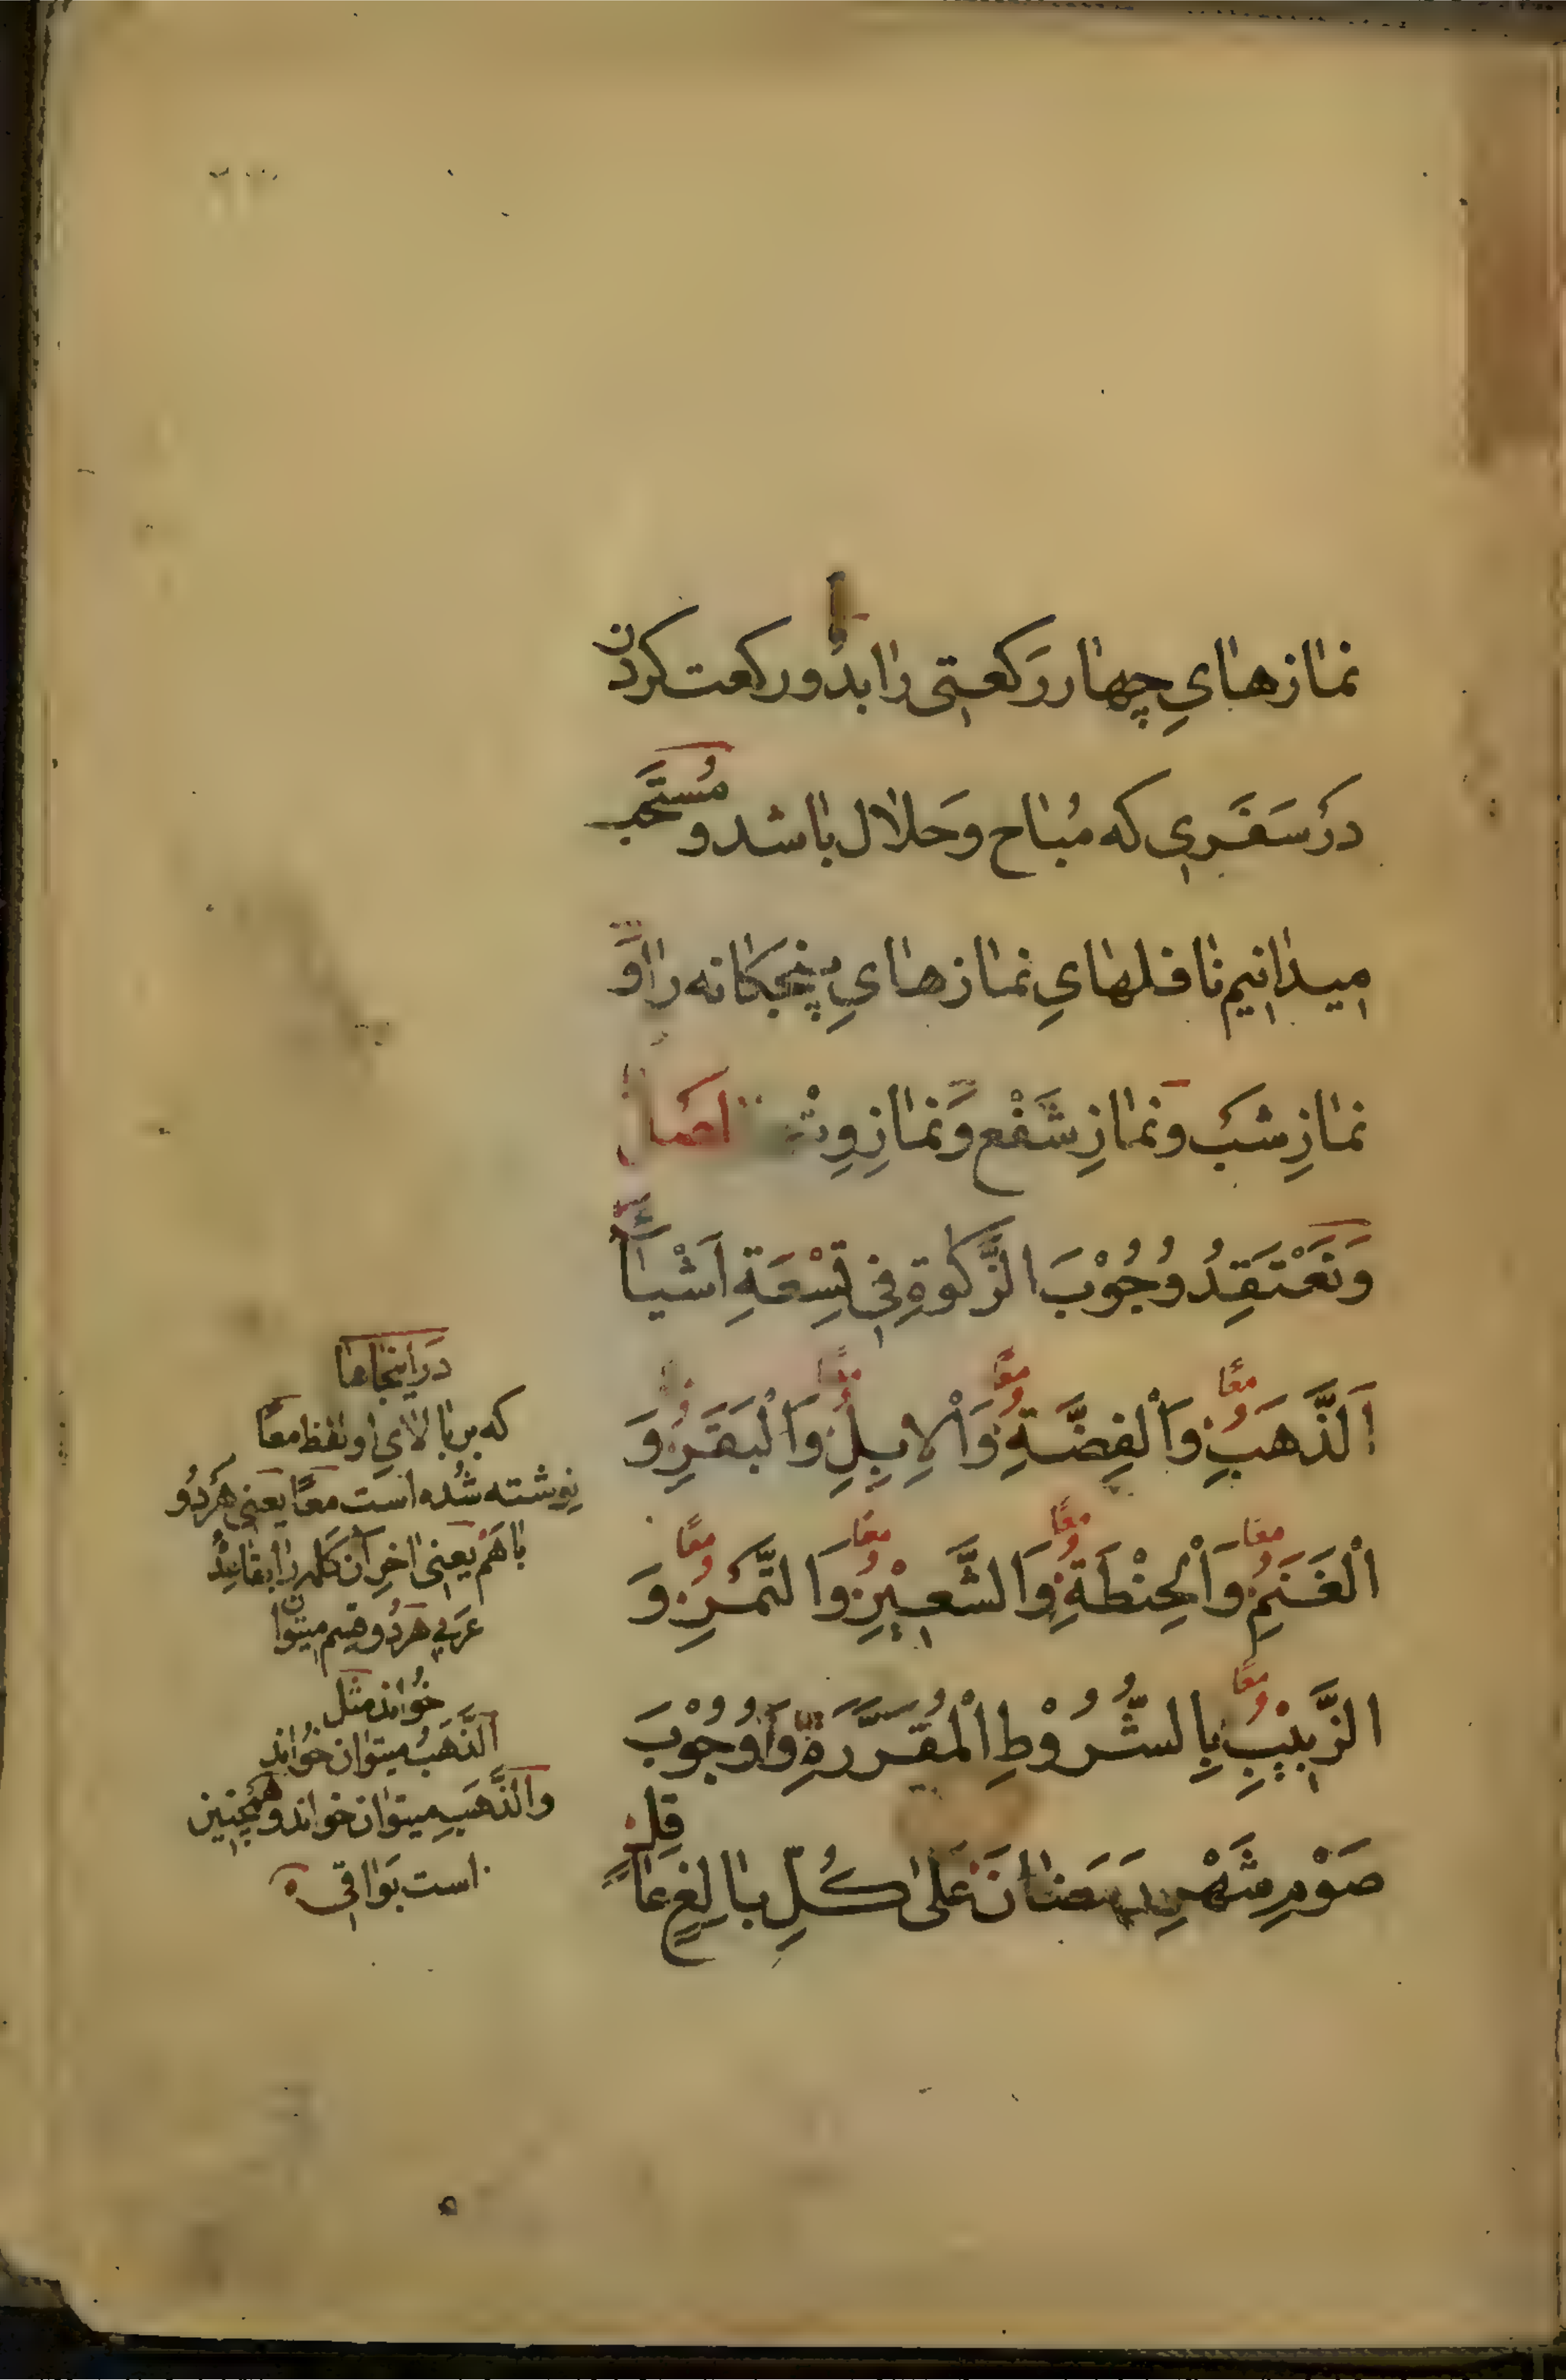 نمازهایِ چهار رَکعتی را بدُو رکعت کردن
دَر سَفَری که مُباح وَ حلال باشد و مُستَحَب
میدانیم نافلهایِ نمازهایِ پنجکانه را وَ
نمازِ شب وَ نمازِ شَفْع وَ نمازِ وِتْر اصل
وَ نَعْتَقِدُ وُجُوْبَ الزَّکٰوةِ فِی تِسْعَةِ اَشْیَاءَ
اَلذَّهَبُِ وَالْفِضَّةُِ وَالْاِبِلُِ وَالْبَقَرُِ وَ
الْغَنَمُِ وَالْحِنْطَةُِ وَالشَّعِیْرُِ وَالتَّمْرُِ وَ
الزَّبِیْبُِ بِالشُّرُوْطِ الْمُقَرَّرَةِ وَ وُجُوْبَ
صَوْمِ شَهْرِ رَمَضَانَ عَلٰی کُلِّ بَالِغٍ عَاقِلٍ
معًا معًا معًا
معًا معًا معًا معًا
معًا
دَر اینجاها
که بر بالایِ او لفظ معًا
نِوشته شُده است معًا یَعنی هَردُو
باهَم یَعنی اخرِ آن کَلمه را بقاعِدۀ
عَرَبی هَردُو قِسم میتوان
خُواند مثل
اَلذَّهَبُ میتوان خُواند
وَ اَلذَّهَبِ میتوان خواند و همچنین
است بَواقی